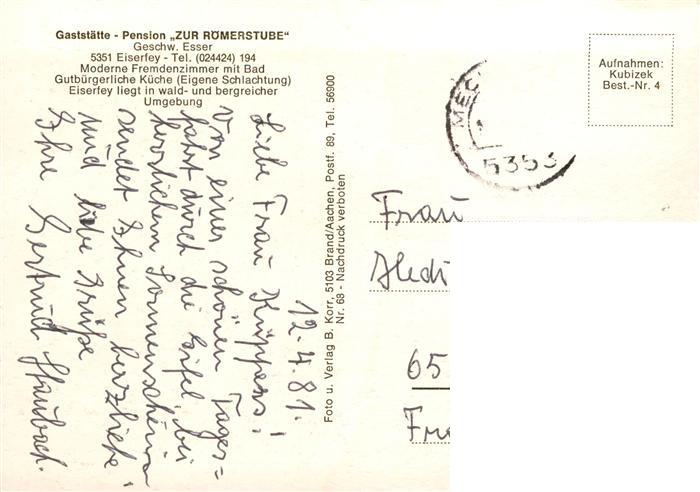 Gaststätte - Pension „ZUR RÖMERSTUBE"
Geschw. Esser
5351 Eiserfey - Tel. (024424) 194
Moderne Fremdenzimmer mit Bad
Gutbürgerliche Küche (Eigene Schlachtung)
Eiserfey liegt in wald- und bergreicher
Umgebung
12.4.81.
Liebe Frau Küppers!
Von einer schönen Tages=
fahrt durch die Eifel bei
herrlichem Sonnenschein
sendet Ihnen herzliche
und liebe Grüße
Ihre Gertrud
Foto u. Verlag B. Korr, 5103 Brand/Aachen, Postf. 89, Tel. 56900
Nr. 68 - Nachdruck verboten
MEC
5353
Aufnahmen:
Kubizek
Best.-Nr. 4
Frau
Hedi
65
Fr